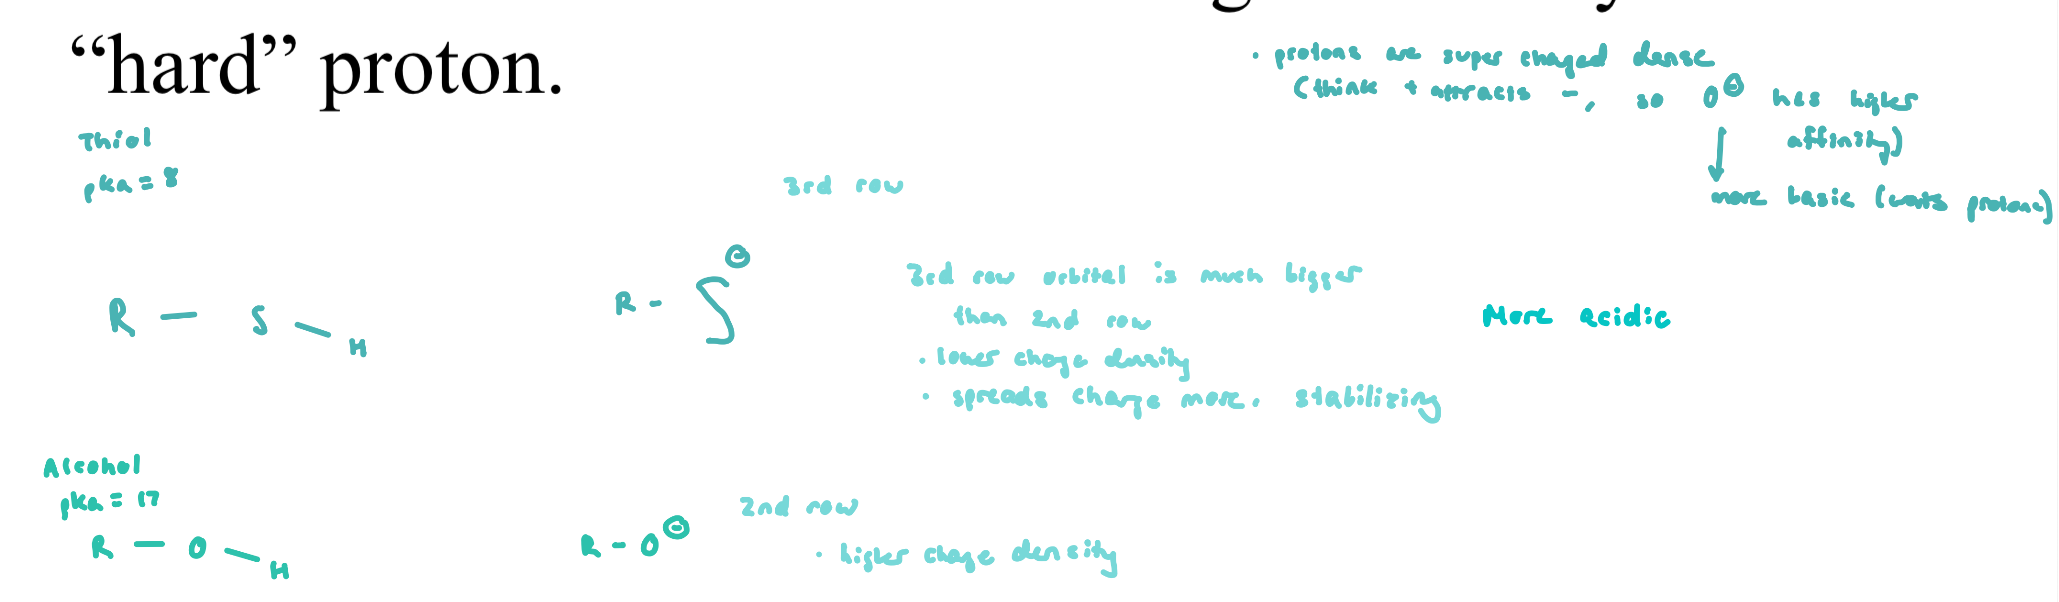 “hard” proton.
• protons are super charged dense
(think + attracts -, so O⊖ has higher
affinity)
more basic (wants protons)
Thiol
pka = 8
3rd row
R — S — H
R - S⊖
3rd row orbital is much bigger
than 2nd row
• lower charge density
• spreads charge more. stabilizing
More acidic
Alcohol
pka = 17
R — O — H
R - O⊖
2nd row
• higher charge density